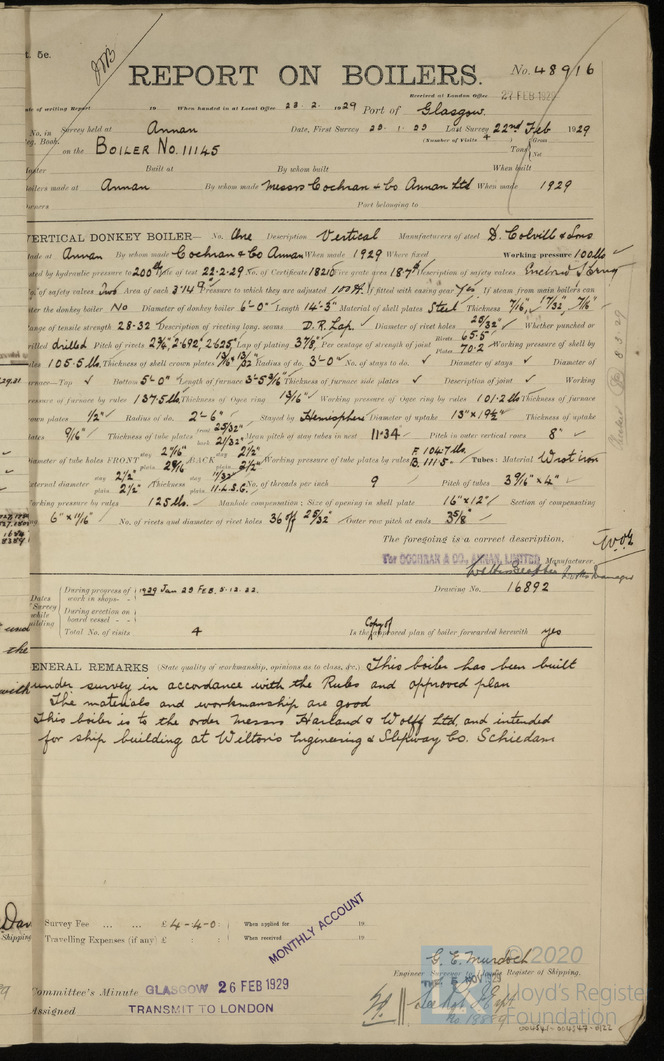 t. 5e.
REPORT ON BOILERS.
No. 48916
Received at London Office 27 FEB 1929
ate of writing Report 19 When handed in at Local Office 23. 2. 1929 Port of Glasgow.
No. in Survey held at Annan Date, First Survey Last Survey 22nd Feb 1929
eg. Book. (Number of Visits 4
on the BOILER NO. 11145 Tons Gross Net
Master Built at By whom built When built
oilers made at Annan By whom made Messrs Cochran & Co Annan Ltd When made 1929
wners Port belonging to
VERTICAL DONKEY BOILER— No. One Description Vertical Manufacturers of steel D. Colville & Sons
ade at Annan By whom made Cochran & Co Annan When made 1929 Where fixed Working pressure 100 lbs
sted by hydraulic pressure to 200 lb Date of test 22-2-29 No. of Certificate 18210 Fire grate area Description of safety valves Enclosed Spring
No. of safety valves Two Area of each 3.14 Pressure to which they are adjusted If fitted with easing gear Yes If steam from main boilers can
ter the donkey boiler No Diameter of donkey boiler 6'-0" Length 14'-3" Material of shell plates Steel Thickness 7/16", 17/32", 7/16"
ange of tensile strength 28-32 Description of riveting long. seams D.R. Lap. Diameter of rivet holes 25/32" Whether punched or
rilled drilled Pitch of rivets 2.692", 2.625" Lap of plating 3 7/8" Per centage of strength of joint Rivets 65.5 Plates 70.2 Working pressure of shell by
les 105.5 lbs. Thickness of shell crown plates Radius of do. 3'-0" No. of stays to do. Diameter of stays Diameter of
rnace—Top Bottom 5'-0" Length of furnace Thickness of furnace side plates Description of joint Working
ressure of furnace by rules 137.5 lbs Thickness of Ogee ring 13/16" Working pressure of Ogee ring by rules 101.2 lbs Thickness of furnace
own plates 1/2" Radius of do. 2'-6" Stayed by Hemisphere Diameter of uptake 13" x 19 1/2" Thickness of uptake
lates 9/16" Thickness of tube plates front 25/32" back 21/32" Mean pitch of stay tubes in nest 11.34 Pitch in outer vertical rows 8"
iameter of tube holes FRONT stay plain BACK stay 2 1/2" plain Working pressure of tube plates by rules F. 104.7 lbs B. 111.5 Tubes: Material Wrot iron
ternal diameter stay 2 1/2" plain 2 1/2" Thickness stay plain 11. L.S.G. No. of threads per inch 9 Pitch of tubes 3 9/16" x 4"
orking pressure by rules 125 lbs. Manhole compensation: Size of opening in shell plate 16" x 12" Section of compensating
ng 6" x 11/16" No. of rivets and diameter of rivet holes 36 off 25/32" Outer row pitch at ends 3 5/8"
The foregoing is a correct description,
For COCHRAN & CO., ANNAN, LIMITED Manufacturer.
Works Manager
Dates of Survey while building
During progress of work in shops - - 1929 Jan 29 Feb. 5. 12. 22. Drawing No. 16892
During erection on board vessel - -
Total No. of visits 4 Is the Copy of approved plan of boiler forwarded herewith yes
GENERAL REMARKS (State quality of workmanship, opinions as to class, &c.) This boiler has been built
under survey in accordance with the Rules and approved plan
The materials and workmanship are good
This boiler is to the order Messrs Harland & Wolff Ltd, and intended
for ship building at Wilton's Engineering & Slipway Co. Schiedam
Survey Fee ... ... £ 4-4-0: When applied for 19
Travelling Expenses (if any) £ : : When received 19
MONTHLY ACCOUNT
G. E. Murdoch
Engineer Surveyor to Lloyd's Register of Shipping.
Committee's Minute GLASGOW 26 FEB 1929
Assigned TRANSMIT TO LONDON
© 2020
Lloyd's Register
Foundation
004541-004547-0122